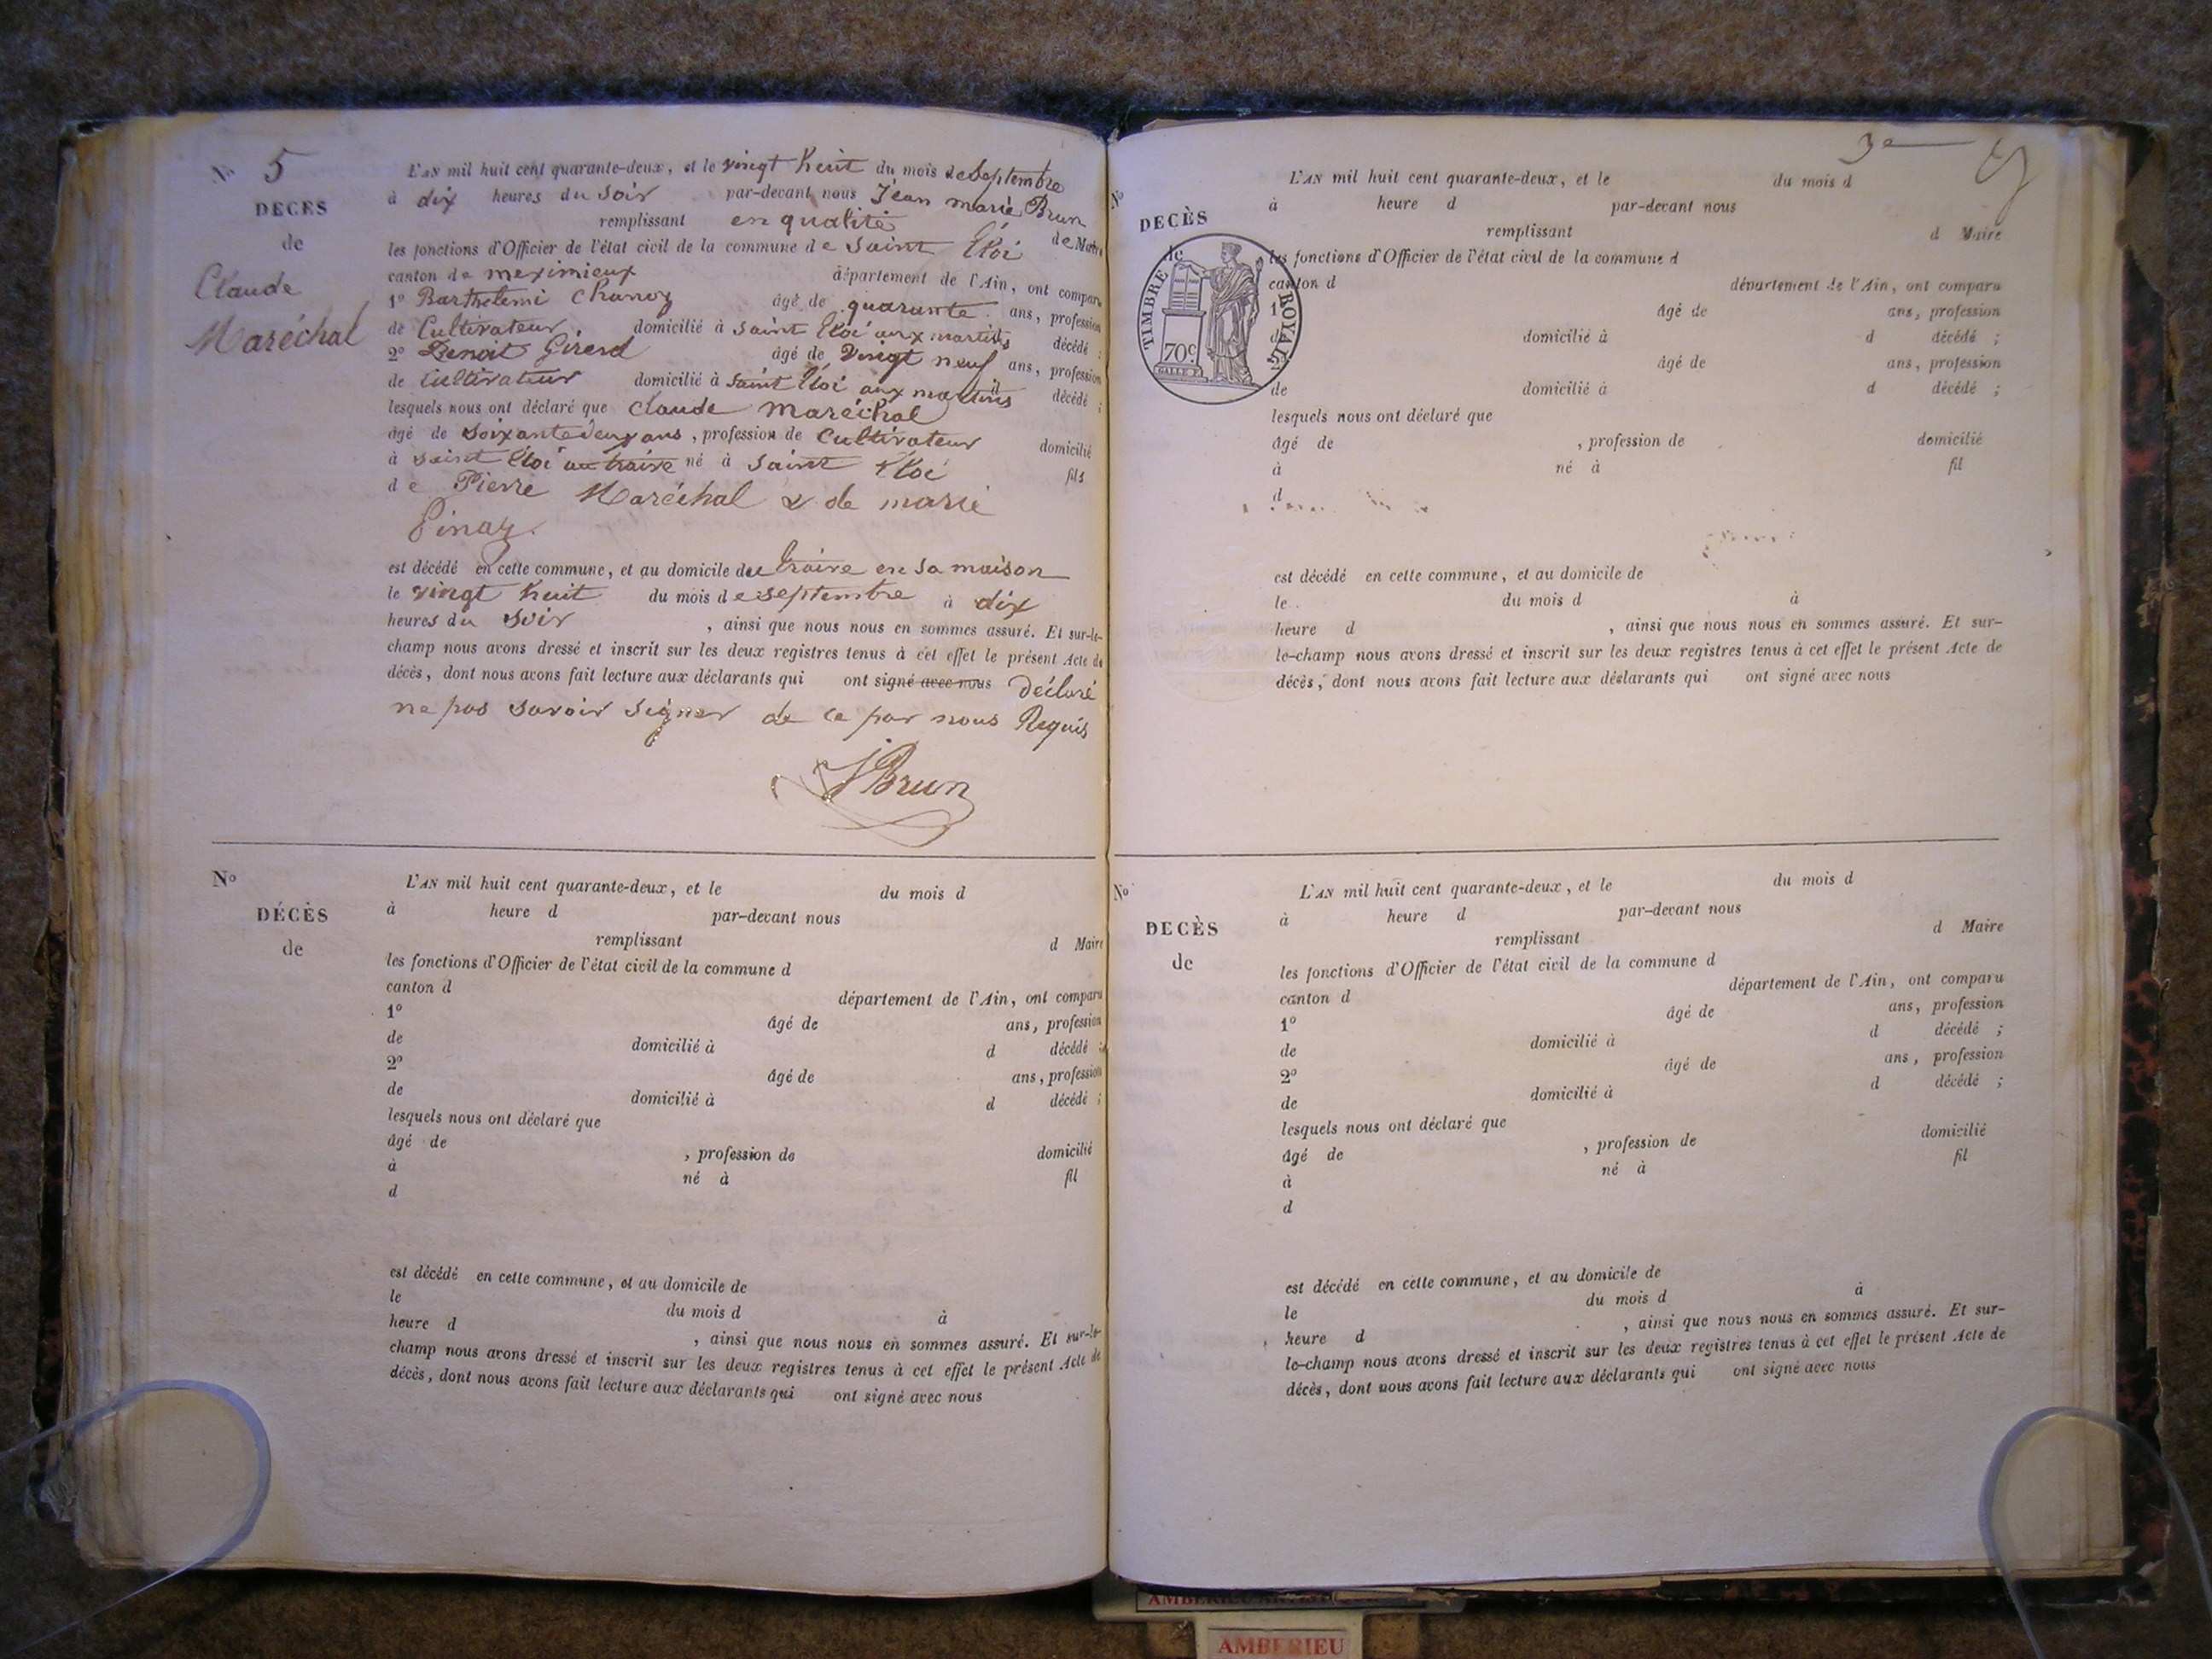 N° 5
DECES
de
Claude
Maréchal
L'AN mil huit cent quarante-deux, et le vingt huit du mois de Septembre
à dix heures du Soir par-devant nous Jean marie Brun
remplissant en qualité de Maire
les fonctions d'Officier de l'état civil de la commune de Saint Eloi
canton de meximieux département de l'Ain, ont comparu
1° Barthelemi Chanoz âgé de quarante ans, profession
de Cultivateur domicilié à Saint Eloi aux martins décédé ;
2° Benoit Girerd âgé de vingt neuf ans, profession
de Cultivateur domicilié à Saint Eloi aux martins d décédé ;
lesquels nous ont déclaré que Claude Maréchal
âgé de Soixante deux ans, profession de Cultivateur domicilié
à Saint Eloi au traive né à Saint Eloi fils
de Pierre Maréchal & de marie
Pinaz.
est décédé en cette commune, et au domicile du traive en Sa maison
le vingt huit du mois de septembre à dix
heures du Soir , ainsi que nous nous en sommes assuré. Et sur-le-
champ nous avons dressé et inscrit sur les deux registres tenus à cet effet le présent Acte de
décès, dont nous avons fait lecture aux déclarants qui ont signé avec nous Déclaré
ne pas Savoir Signer de ce par nous Requis
JBrun
N°
DÉCÈS
de
L'AN mil huit cent quarante-deux, et le du mois d
à heure d par-devant nous
remplissant d Maire
les fonctions d'Officier de l'état civil de la commune d
canton d département de l'Ain, ont comparu
1° âgé de ans, profession
de domicilié à d décédé ;
2° âgé de ans, profession
de domicilié à d décédé ;
lesquels nous ont déclaré que
âgé de , profession de domicilié
à né à fil
d
est décédé en cette commune, et au domicile de
le du mois d à
heure d , ainsi que nous nous en sommes assuré. Et sur-le-
champ nous avons dressé et inscrit sur les deux registres tenus à cet effet le présent Acte de
décès, dont nous avons fait lecture aux déclarants qui ont signé avec nous
3e
N°
DECÈS
de
TIMBRE ROYAL
70c
L'AN mil huit cent quarante-deux, et le du mois d
à heure d par-devant nous
remplissant d Maire
les fonctions d'Officier de l'état civil de la commune d
canton d département de l'Ain, ont comparu
1° âgé de ans, profession
d domicilié à d décédé ;
2° âgé de ans, profession
de domicilié à d décédé ;
lesquels nous ont déclaré que
âgé de , profession de domicilié
à né à fil
d
est décédé en cette commune, et au domicile de
le du mois d à
heure d , ainsi que nous nous en sommes assuré. Et sur-
le-champ nous avons dressé et inscrit sur les deux registres tenus à cet effet le présent Acte de
décès, dont nous avons fait lecture aux déclarants qui ont signé avec nous
N°
DECÈS
de
L'AN mil huit cent quarante-deux, et le du mois d
à heure d par-devant nous
remplissant d Maire
les fonctions d'Officier de l'état civil de la commune d
canton d département de l'Ain, ont comparu
1° âgé de ans, profession
de domicilié à d décédé ;
2° âgé de ans, profession
de domicilié à d décédé ;
lesquels nous ont déclaré que
âgé de , profession de domicilié
à né à fil
d
est décédé en cette commune, et au domicile de
le du mois d à
heure d , ainsi que nous nous en sommes assuré. Et sur-
le-champ nous avons dressé et inscrit sur les deux registres tenus à cet effet le présent Acte de
décès, dont nous avons fait lecture aux déclarants qui ont signé avec nous
AMBERIEU